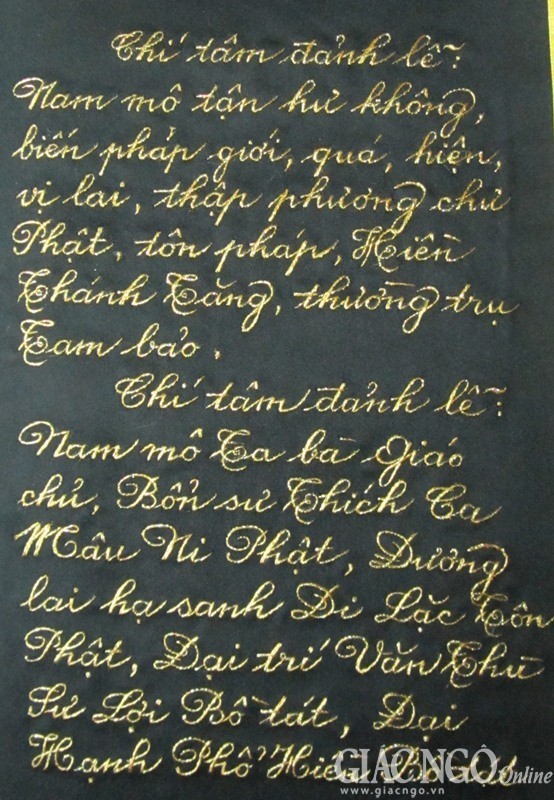 Chí tâm đảnh lễ:
Nam mô tận hư không,
biến pháp giới, quá, hiện,
vị lai, thập phương chư
Phật, tôn pháp, Hiền
Thánh Tăng, thường trụ
Tam bảo.
Chí tâm đảnh lễ:
Nam mô Ta bà Giáo
chủ, Bổn sư Thích Ca
Mâu Ni Phật, Đương
lai hạ sanh Di Lặc Tôn
Phật, Đại trí Văn Thù
Sư Lợi Bồ tát, Đại
Hạnh Phổ Hiền Bồ tát
GIACNGO Online
www.giacngo.vn